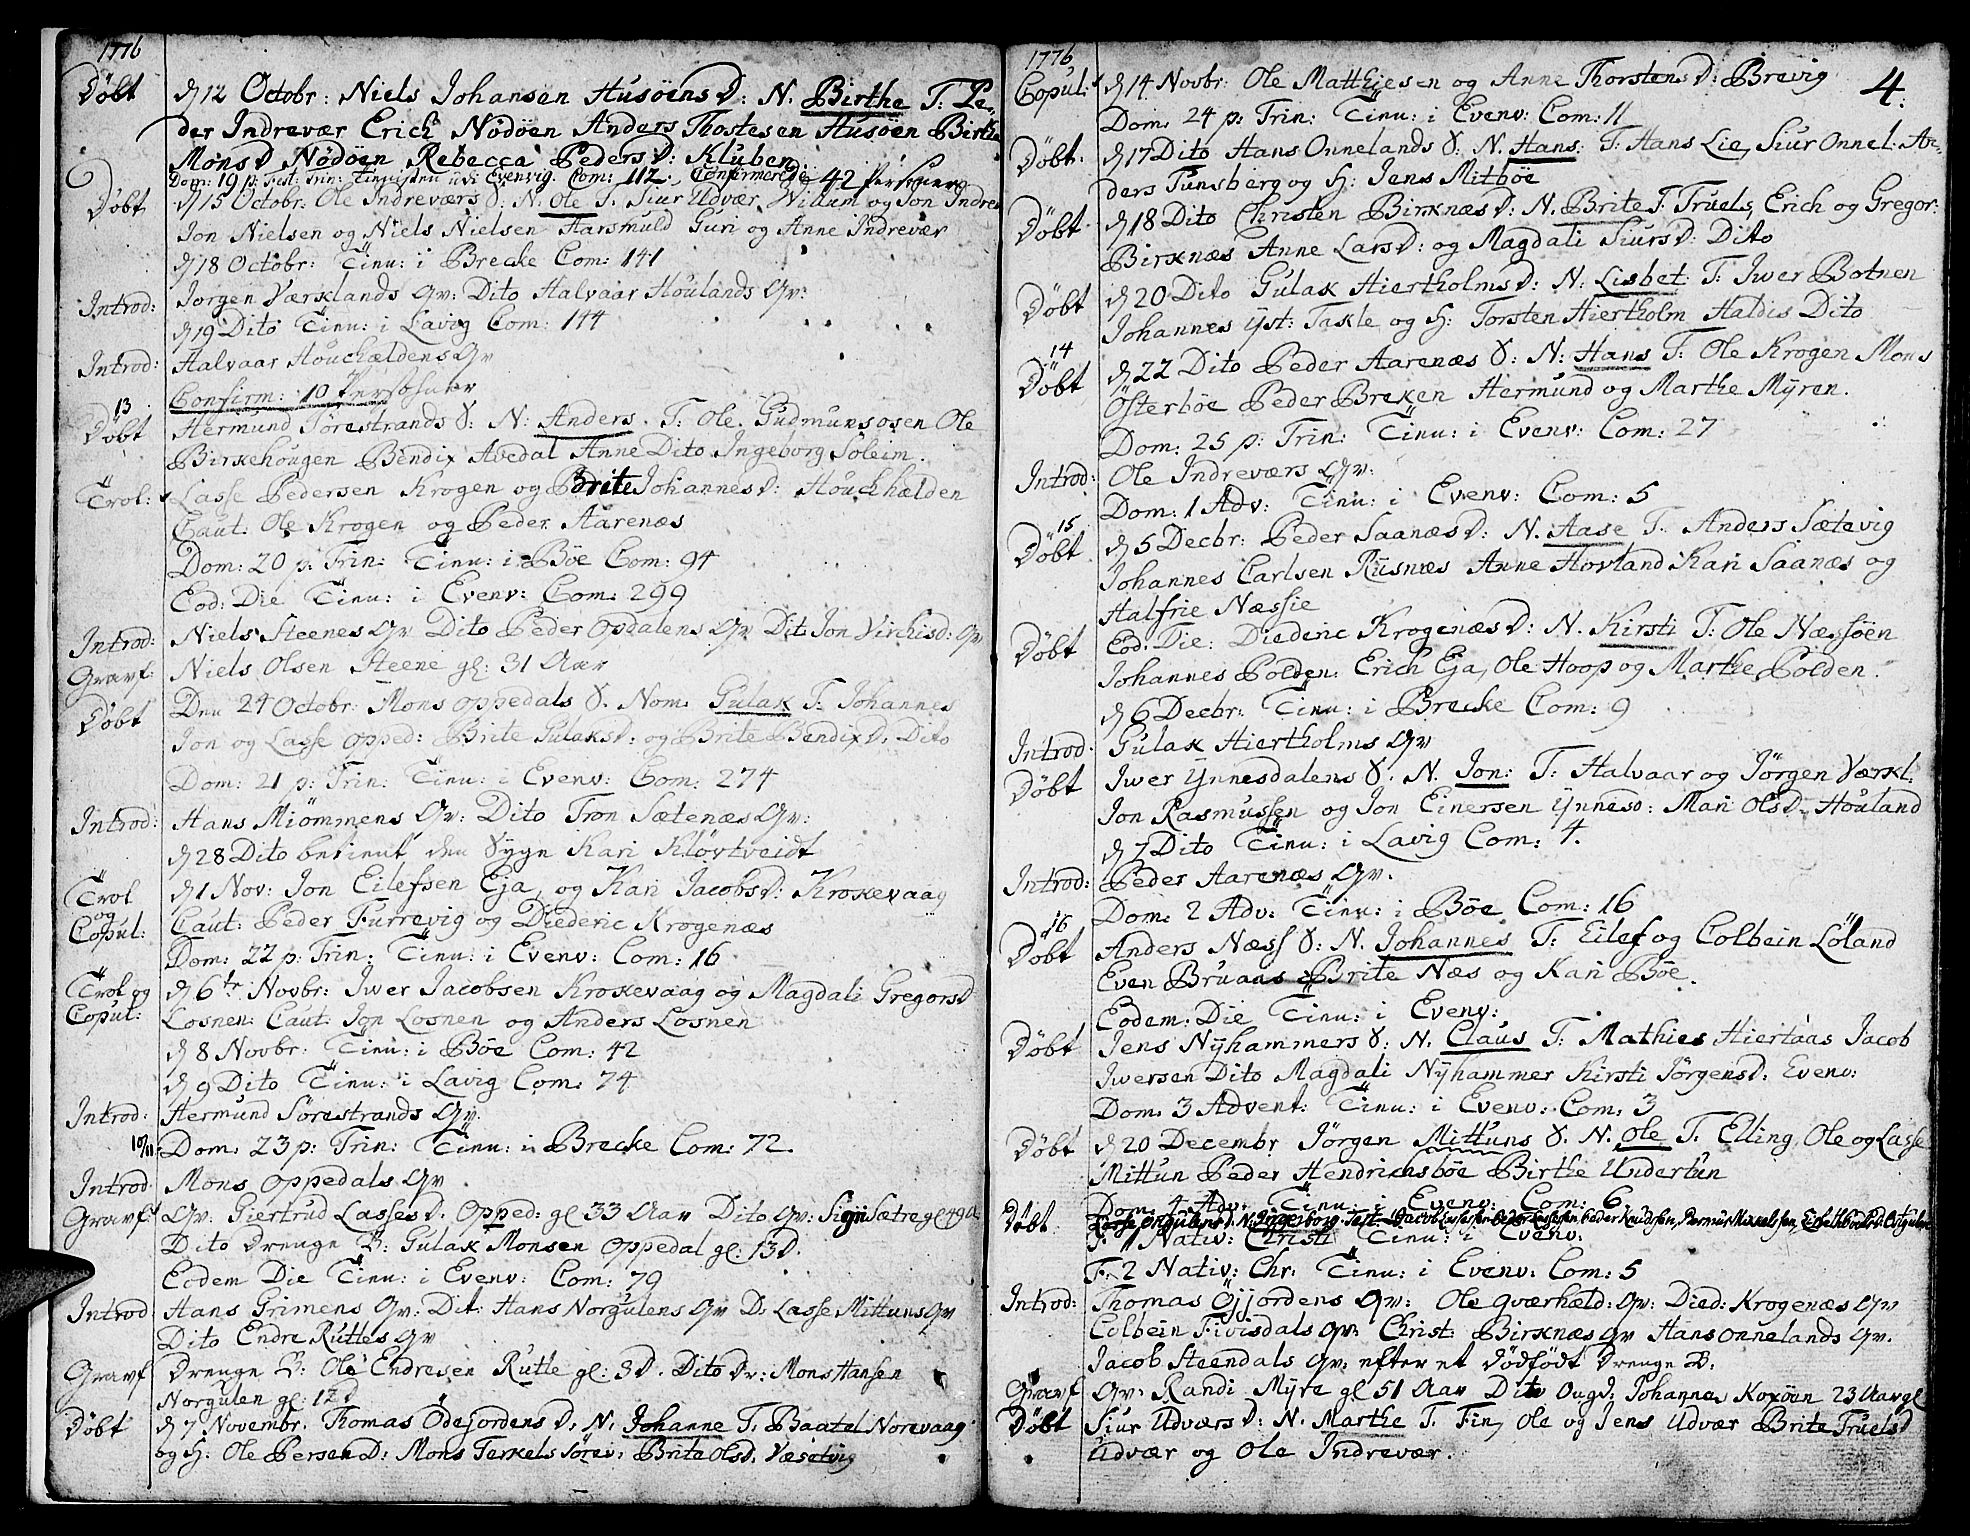 1776
Døbt
d 12 Octobr: Niels Johansen Husöens D: N. Birthe T: Pe-
der Indrevær Erich Nodöen Anders Thostesen Husöen Birthe
MonsD Nödöen Rebecca PedersD: Kluben.
Dom: 19 p: Fest: Trin: Tienisten udi Evenvig. Com: 112. Confirmerede 42 Personer
Døbt
d 15 Octobr: Ole Indreværs S: N. Ole T. Siur Udvær, Willum og Jon Indre
Jon Nielsen og Niels Nielsen Aarsmuld Guri og Anne Indrevær
d 18 Octobr: Tien: i Brecke Com: 141
Introd: Jorgen Værklands Qv: Dito Halvaar Houlands Qv:
d 19 Dito Tien: i Lavig Com: 144
Introd: Halvaar Houchældens Qv
Confirm: 10 Persohner
13
Døbt Hermund Sørestrands S: N: Anders. T: Ole. Gudmunsosen Ole
Birkehougen Bendix Avedal Anne Dito Ingeborg Soleim.
Trol: Lasse Pedersen Krogen og Brite JohannesD: Houchhælden
Caut: Ole Krogen og Peder Aarenæs
Dom: 20 p: Trin: Tien: i Böe Com: 94
Eod: Die Tien: i Evenv: Com: 299
Introd: Niels Steenes Qv Dito Peder Opdalens Qv Dito Jon Virchisd: Qv
Gravf: Niels Olsen Steene gl: 31 Aar
Døbt Den 24 Octobr: Mons Oppedals S. Nom. Gulak T: Johannes
Jon og Lasse Opped: Brite GulaksD: og Brite BendixD. Dito
Dom: 21 p: Trin: Tien: i Evenv: Com: 274
Introd: Hans Miömmens Qv: Dito Tron Sætenæs Qv:
d 28 Dito betient den Syge Kari Klövtveidt
Trol og Copul:
d 1 Nov: Jon Eilefsen Eja, og Kari JacobsD: Krokevaag
Caut: Peder Furrevig og Diederic Krogenæs
Dom: 22 p: Trin: Tien: i Evenv: Com: 16
Trol og Copul:
d 6te Novbr: Iwer Jacobsen Krokevaag og Magdali GregorsD
Losnen: Caut: Jon Losnen og Anders Losnen
d 8 Novbr: Tien: i Böe Com: 42
d 9 Dito Tien: i Lavig Com: 74
Introd: Hermund Sörestrands Qv.
10/11 Dom: 23 p: Trin: Tien: i Brecke Com: 72.
Introd Mons Oppedals Qv
Gravf: Qv: Giertrud LassesD. Opped: gl 33 Aar Dito Qv: Signi Sætre gl 49 A
Dito Drenge B: Gulak Monsen Oppedal gl: 13 D.
Eodem Die Tien: i Evenv: Com: 79
Introd Hans Grimens Qv: Dit: Hans Norgulens Qv D: Lasse Mittuns Qv
Dito Endre Rutles Qv
Gravf Drenge B: Ole Endresen Rutle gl: 3 D. Dito Dr: Mons Hansen
Norgulen gl: 12 D
Døbt d 7 Novembr. Thomas Ödejordens D. N. Johanne T. Baatel Norevaag
og H: Ole Persen D: Mons Terkelsören: Brite OlsD. Væsetvig
1776
4.
Copul: d 14 Novbr: Ole Matthiesen og Anne ThorstensD: Brevig
Dom: 24 p: Trin: Tien: i Evenv: Com: 11
Døbt. d 17 Dito Hans Onnelands S: N. Hans: T: Hans Lie, Siur Onnel: An-
ders Tunsberg og H: Jens Mitböe
Døbt d 18 Dito Christen Birknæs D: N. Brite T. Truels, Erich og Gregor:
Birknæs Anne LarsD: og Magdali SiursD: Dito
Døbt d 20 Dito Gulak Hiertholms D: N: Lisbet T: Iwer Botnen
Johannes yst: Takle og H: Torsten Hiertholm Haldis Dito
14
Døbt d 22 Dito Peder Aarenæs S: N: Hans T: Ole Krogen Mons
Österböe Peder Breken Hermund og Marthe Myren.
Dom: 25 p: Trin: Tien: i Evenv: Com: 27
Introd: Ole Indreværs Qv:
Dom: 1 Adv: Tien: i Evenv: Com: 5
15
Døbt d 5 Decbr: Peder Saanæs D: N. Aase T. Anders Sætevig
Johannes Carlsen Riisnæs Anne Hovland Kari Saanæs og
Halfrie Næssie
Døbt Eod. Die: Diederic Krogenæs D: N. Kirsti T: Ole Næssöen
Johannes Polden: Erich Eja, Ole Hoop og Marthe Polden.
d 6 Decbr: Tien: i Brecke Com: 9
Introd: Gulak Hiertholms Qv
Døbt Iwer Ynnesdalens S. N. Jon: T: Halvaar og Jörgen Værkl:
Jon Rasmussen og Jon Einersen Ynnesd: Mari OlsD. Houland
d 7 Dito Tien: i Lavig Com: 4.
Introd: Peder Aarenæs Qv.
Dom: 2 Adv: Tien: i Böe Com: 16
16
Døbt Anders Næss S: N. Johannes T: Eilef og Colbein Löland
Even Bruaas Brite Næs og Kari Böe.
Eodem: Die Tien: i Evenv:
Døbt Jens Nyhammers S: N. Claus T: Mathies Hiertaas Jacob
Iwersen Dito Magdali Nyhammer Kirsti JörgensD. Evenv:
Dom: 3 Advent: Tien: i Evenv: Com: 3
Døbt d 20 Decembr Jörgen Mittuns S. N. Ole T. Elling, Ole og Lasse
Mittun Peder Hendrichsböe Birthe Undertun
Dom: 4 Adv: Tien: i Evenv: Com: 6
Døbt N. Ingeborg Test: Jacob Lassesen Peder Knudsen,
F: 1 Nativ: Christi Tien: i Evenv:
F: 2 Nativ: Chr: Tien: i Evenv: Com: 5
Introd: Thomas Öjjordens Qv: Ole Qværhæld: Qv: Died: Krogenæs Qv
Colbein Fivisdals Qv: Christ: Birknæs Qv Hans Onnelands Qv.
Jacob Steendals Qv: efter et Dödfödt Drenge B:
Gravf Qv: Randi Myre gl 51 Aar Dito Ougd: Johanna Koxöen 23 Aar gl
Døbt Siur Udværs D: N. Marthe T. Fin, Ole og Jens Udvær Brite TruelsD
Udvær og Ole Indrevær.